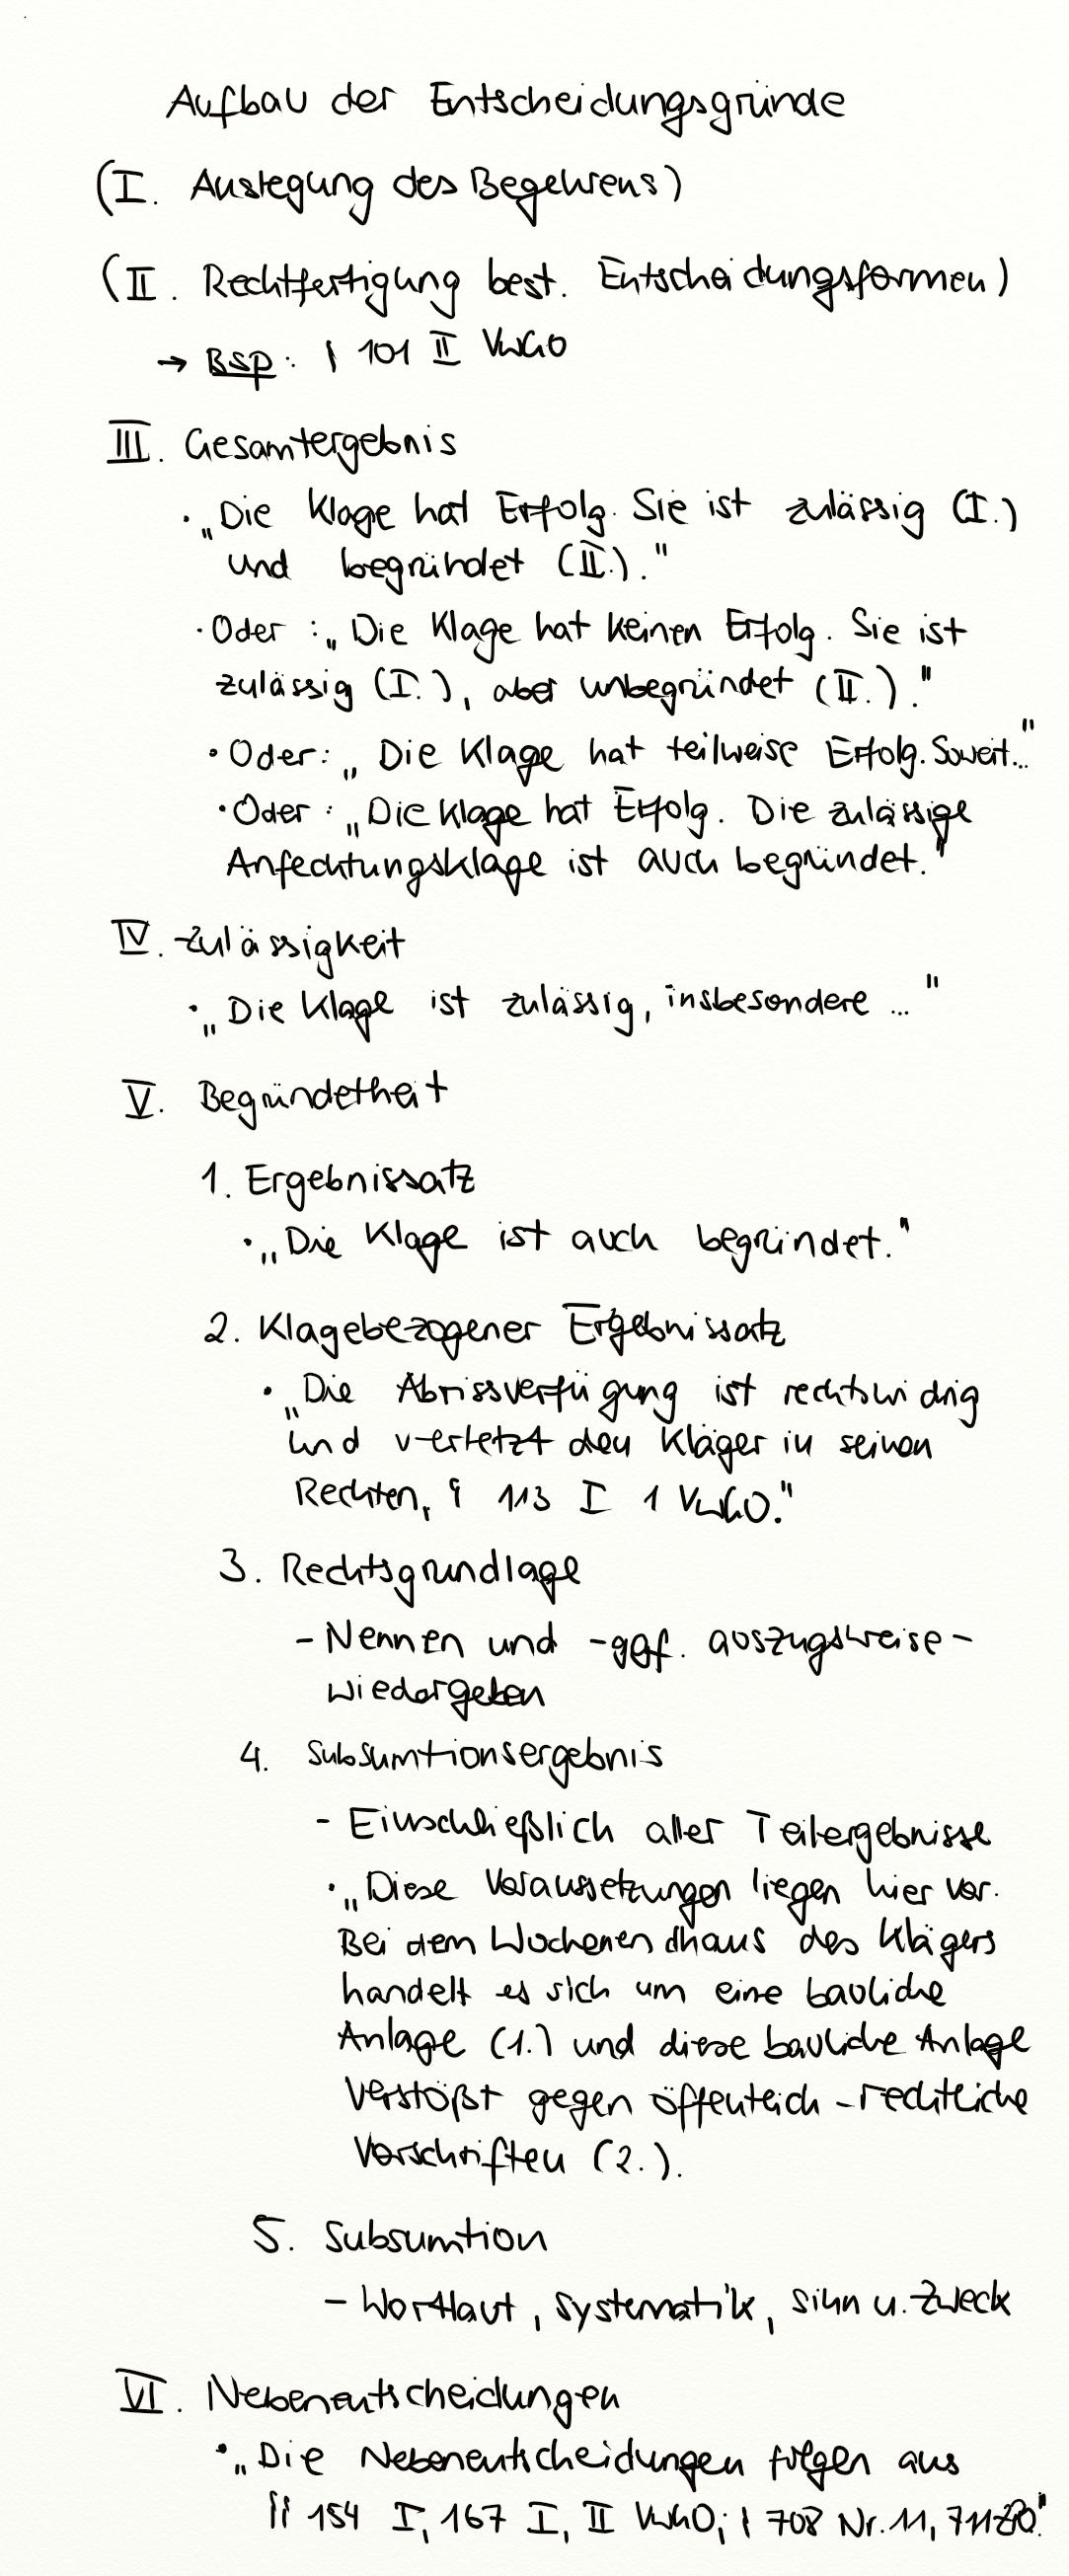 Aufbau der Entscheidungsgründe
(I. Auslegung des Begehrens)
(II. Rechtfertigung best. Entscheidungsformen)
→ Bsp: § 101 II VwGO
III. Gesamtergebnis
· „Die Klage hat Erfolg. Sie ist zulässig (I.)
und begründet (II.)."
· Oder: „Die Klage hat keinen Erfolg. Sie ist
zulässig (I.), aber unbegründet (II.)."
· Oder: „Die Klage hat teilweise Erfolg. Soweit..."
· Oder: „Die Klage hat Erfolg. Die zulässige
Anfechtungsklage ist auch begründet."
IV. Zulässigkeit
· „Die Klage ist zulässig, insbesondere ..."
V. Begründetheit
1. Ergebnissatz
· „Die Klage ist auch begründet."
2. Klagebezogener Ergebnissatz
· „Die Abrissverfügung ist rechtswidrig
und verletzt den Kläger in seinen
Rechten, § 113 I 1 VwGO."
3. Rechtsgrundlage
- Nennen und -ggf. auszugsweise-
wiedergeben
4. Subsumtionsergebnis
- Einschließlich aller Teilergebnisse
· „Diese Voraussetzungen liegen hier vor.
Bei dem Wochenendhaus des Klägers
handelt es sich um eine bauliche
Anlage (1.) und diese bauliche Anlage
verstößt gegen öffentlich-rechtliche
Vorschriften (2.).
5. Subsumtion
- Wortlaut, Systematik, Sinn u. Zweck
VI. Nebenentscheidungen
· „Die Nebenentscheidungen folgen aus
§§ 154 I, 167 I, II VwGO; § 708 Nr. 11, 711 ZPO."